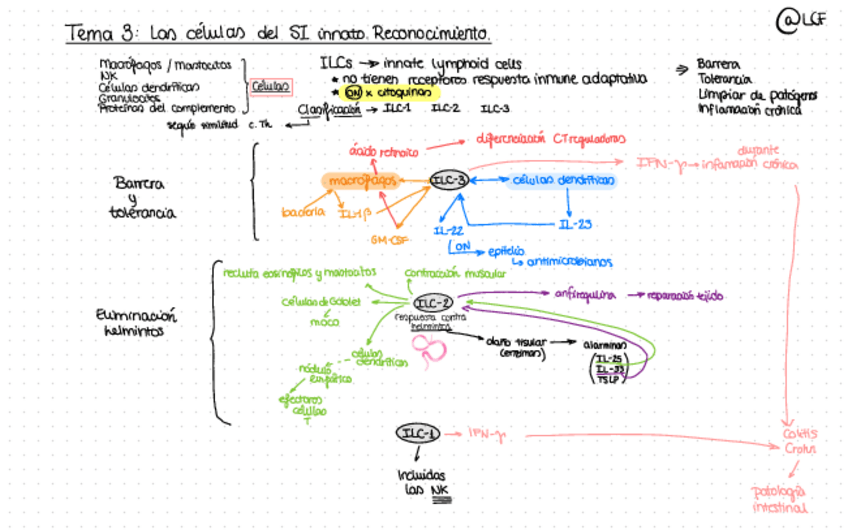 @LCF
Tema 3: Las células del SI innato. Reconocimiento.
Macrófagos / mastocitos
NK
Células dendríticas
Granulocitos
Proteínas del complemento
Células
ILCs → innate lymphoid cells
* no tienen receptores respuesta inmune adaptativa
* ON x citoquinas
Clasificación → ILC-1 ILC-2 ILC-3
según similitud c. Th
⇒ Barrera
Tolerancia
Limpiar de patógenos
Inflamación crónica
Barrera
y
tolerancia
ácido retinoico
diferenciación CT reguladoras
macrófagos
ILC-3
células dendríticas
IFN-γ → inflamación crónica
durante
bacteria
IL-1β
GM-CSF
IL-22
IL-23
ON
epitelio
↳ antimicrobianos
Eliminación
helmintos
recluta eosinófilos y mastocitos
contracción muscular
células de Goblet
moco
ILC-2
respuesta contra
helmintos
anfiregulina → reparación tejido
daño tisular
(enzimas)
→ alarminas
IL-25
IL-33
TSLP
células
dendríticas
nódulo
linfático
efectoras
células
T
ILC-1 → IFN-γ
Incluidas
las NK
Colitis
Crohn
patología
intestinal